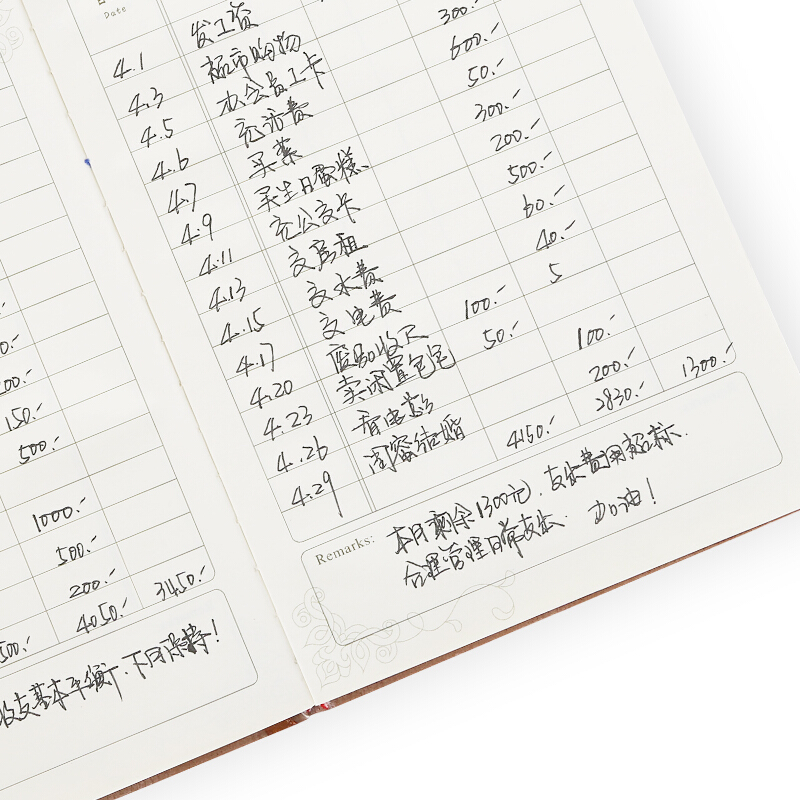 Date
4.1 发工资
4.3 超市购物
4.5 办会员卡 300.-
4.6 充话费 600.-
4.7 买菜 50.-
4.9 买生日蛋糕 300.-
4.11 充公交卡 200.-
4.13 交房租 500.-
4.15 交水费 60.-
4.17 交电费 40.-
4.20 废品收入 100.- 5
4.23 卖闲置包包 50.-
4.26 看电影 100.-
4.29 闺蜜结婚 200.-
4150.- 2830.- 1300.-
Remarks: 本月剩余1300元, 支出费用超标.
合理管理日常支出. 加油!
150.-
500.-
1000.-
500.-
200.-
500.- 4050.- 3450.-
收支基本平衡、下月保持!